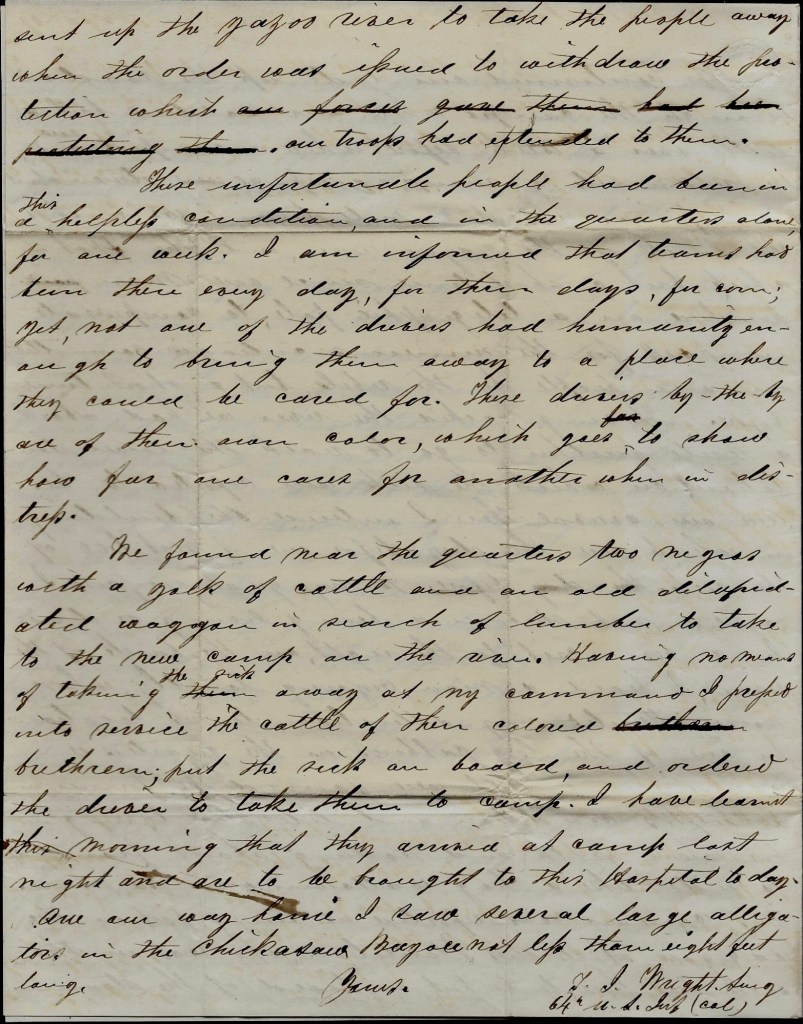 sent up the yazoo river to take the people away
when the order was issued to withdraw the pro-
tection which our forces gave them had been
protecting them. our troops had extended to them.
These unfortunate people had been in
this
a helpless condition, and in the quarters alone,
for one week. I am informed that teams had
been there every day, for three days, for corn;
yet, not one of the drivers had humanity en-
ough to bring them away to a place where
they could be cared for. These drivers by-the-by
are of their own color, which goes far to show
how far one cares for another when in dis-
tress.
We found near the quarters two negros
with a yolk of cattle and an old dilapid-
ated waggon in search of lumber to take
to the new camp on the river. Having no means
the sick
of taking them away at my command I pressed
into service the cattle of their colored brethren
brethren; put the sick on board, and ordered
the driver to take them to camp. I have learnt
this morning that they arrived at camp last
night and are to be brought to this Hospital today.
One our way home I saw several large alliga-
tors in the Chickasaw Bayou not less than eight feet
long.
Yours.
T. J. Wright Surg
64th U. S. Inf (col)